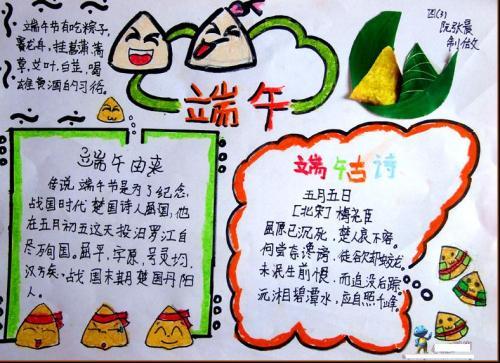 端午节有吃粽子,
赛龙舟,挂菖蒲蒿
草,艾叶,白芷,喝
雄黄酒的习俗。
端午
四(3)
阮张晨
制做
端午由来
传说端午节是为了纪念,
战国时代楚国诗人屈原,他
在五月初五这天投汨罗江自
尽殉国。屈平,字原,号灵均,
汉方族、战国末期楚国丹阳
人。
端午古诗
五月五日
[北宋]梅尧臣
屈原已沉死,楚人哀不容。
何尝奈谗谤,徒欲却蛟龙。
未泯生前恨,而追没后踪。
沅湘碧潭水,应自照千峰。